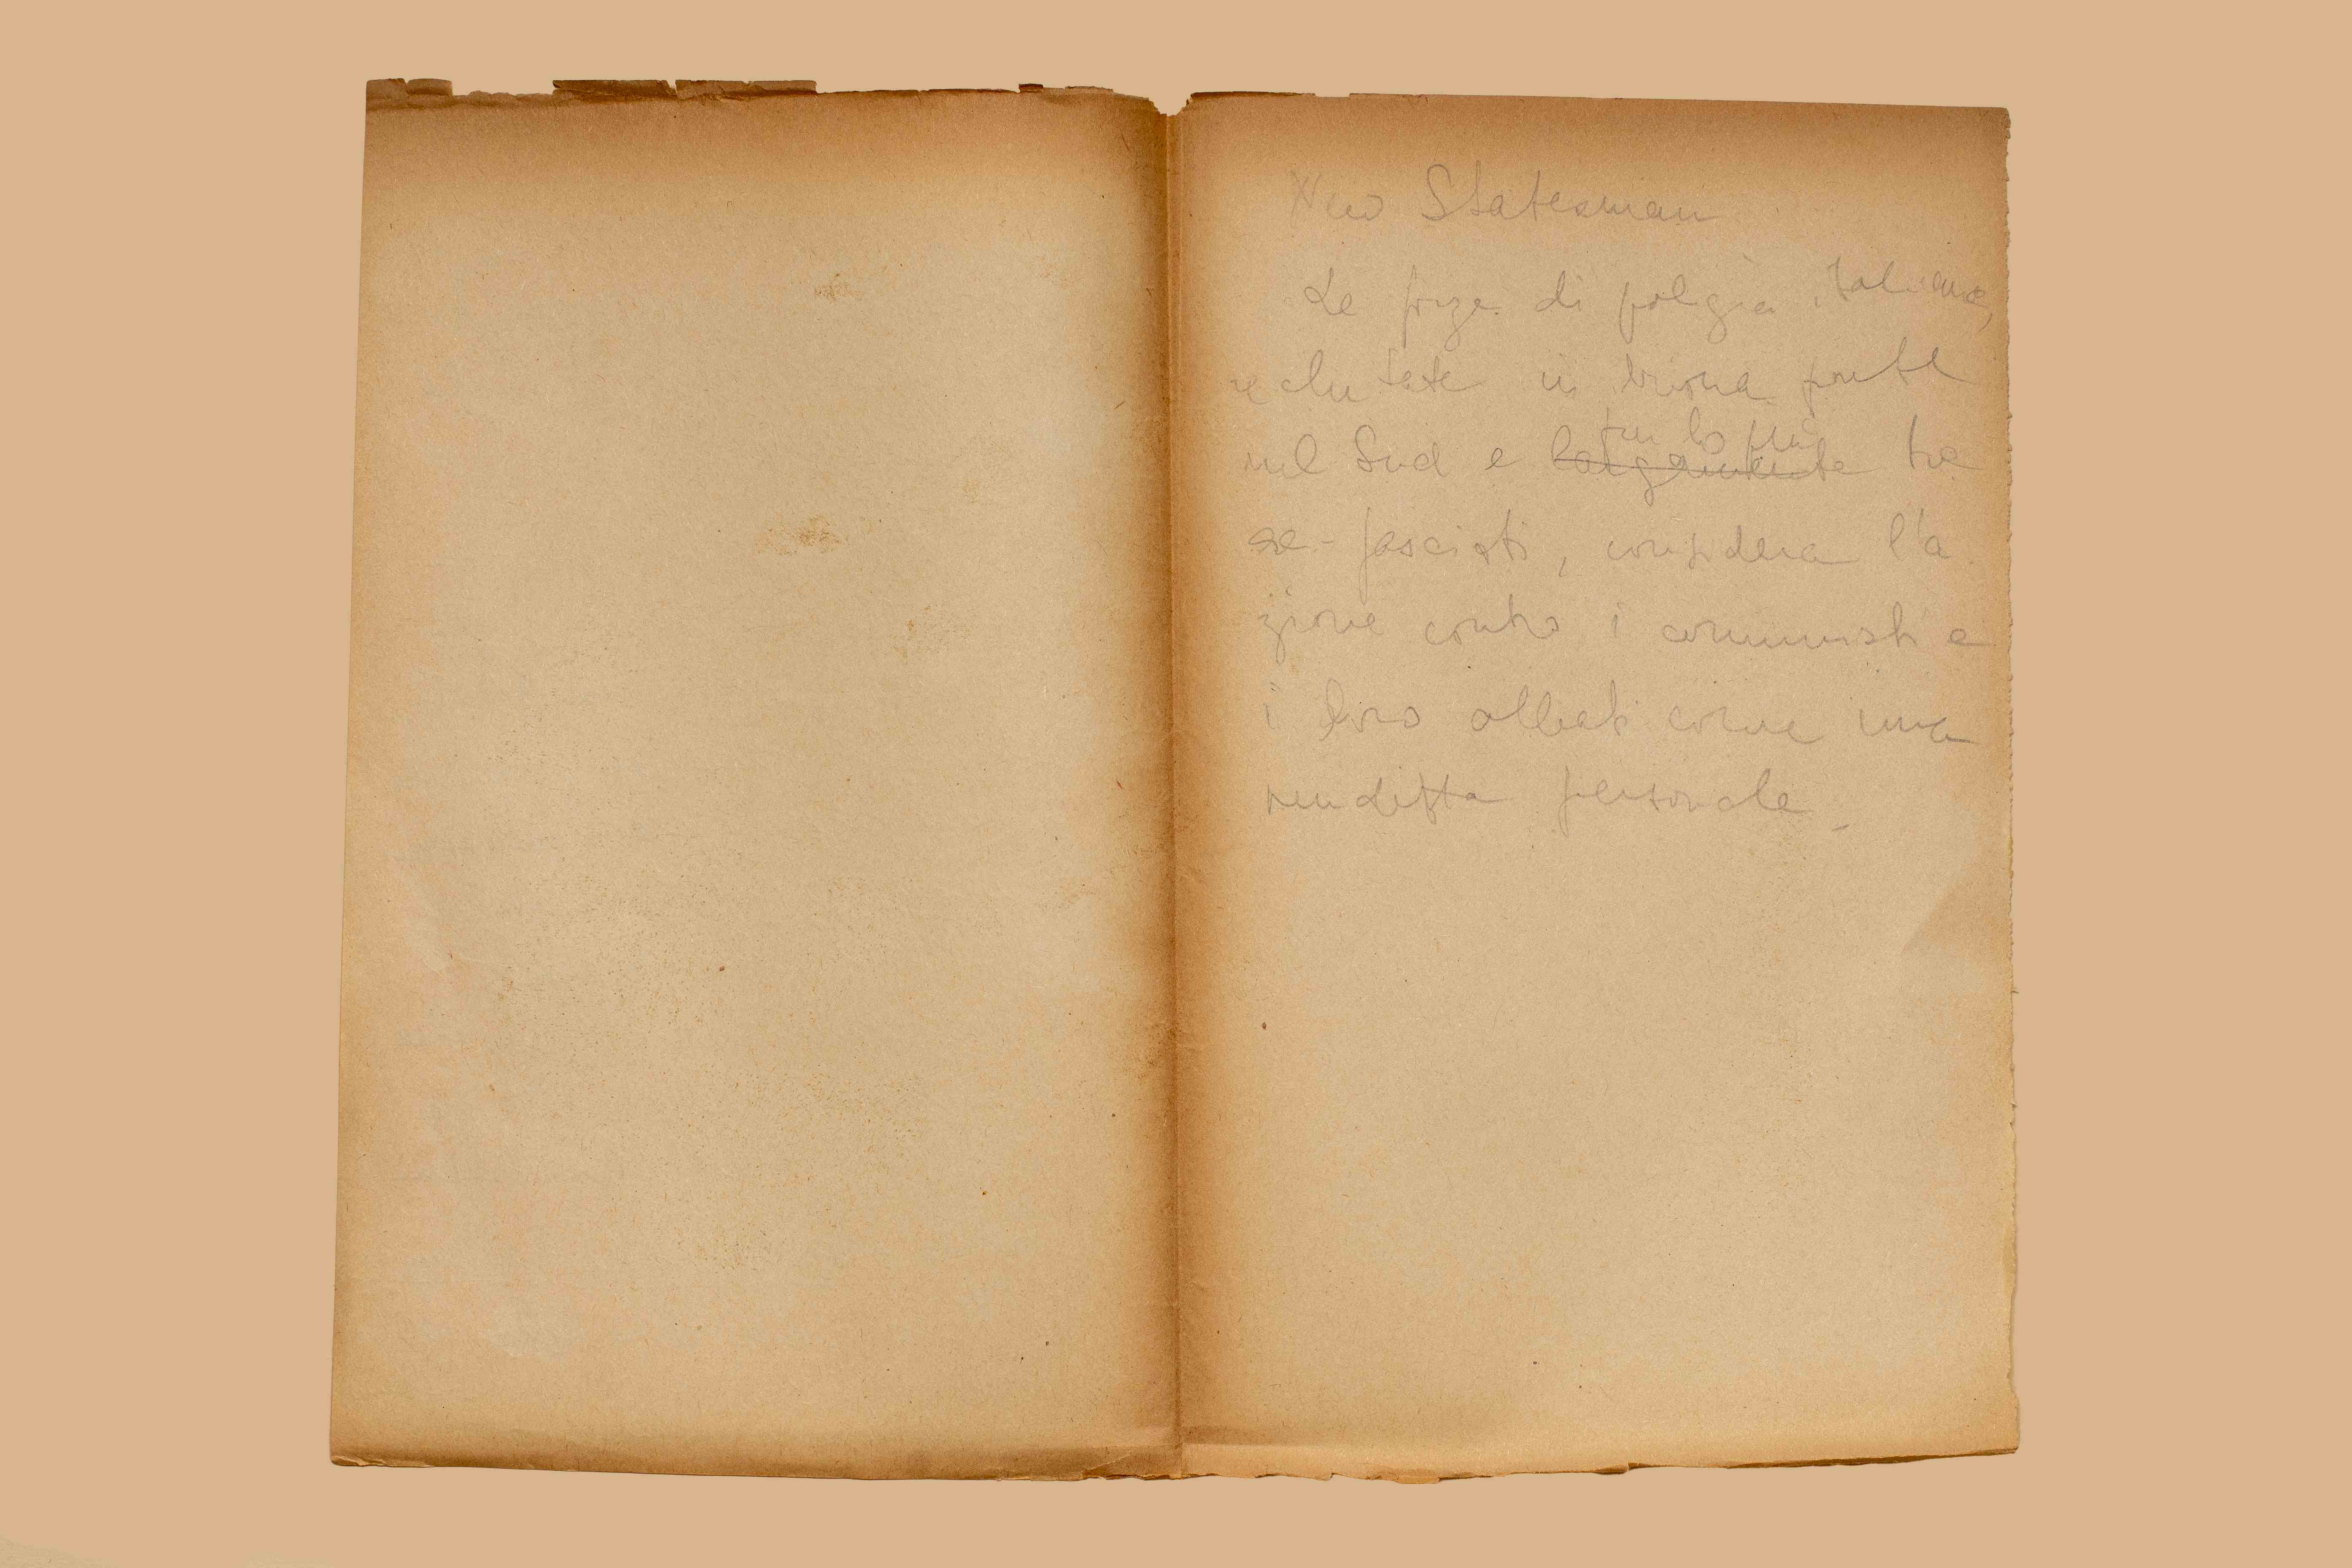 New Statesman
Le forze di polizia italiane,
reclutate in buona parte
nel Sud e largamente per lo più tra
ex-fascisti, considera l'a
zione contro i comunisti e
i loro alleati come una
vendetta personale.